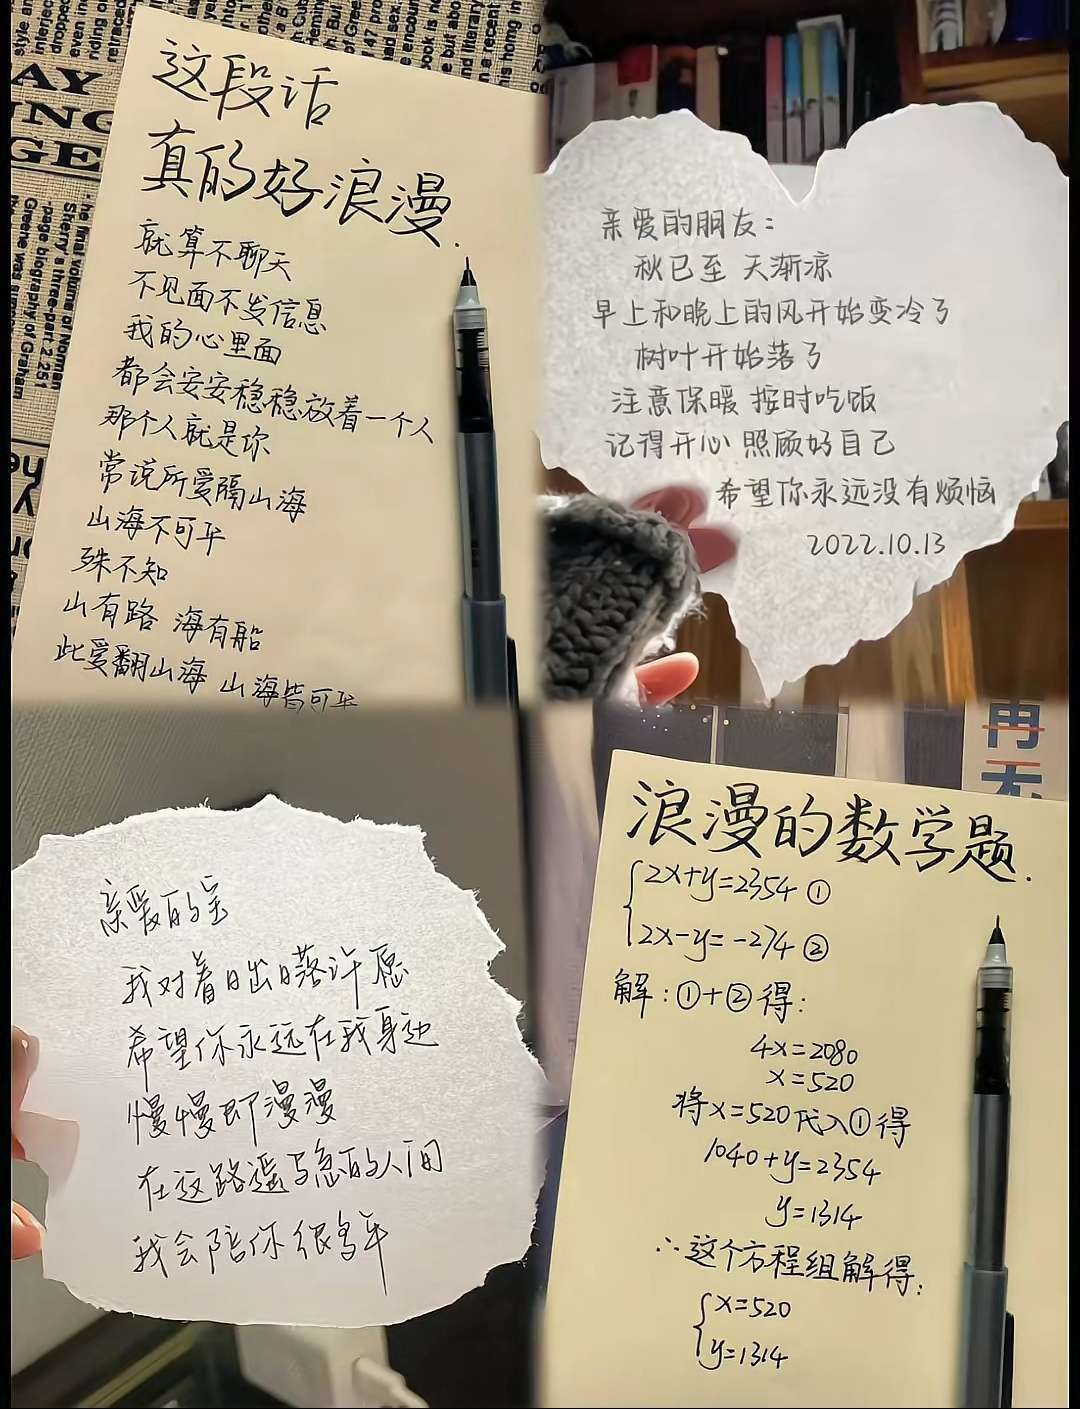 这段话
真的好浪漫.
就算不聊天
不见面不发信息
我的心里面
都会安安稳稳放着一个人
那个人就是你
常说所爱隔山海
山海不可平
殊不知
山有路 海有船
此爱翻山海 山海皆可平
亲爱的朋友:
秋已至 天渐凉
早上和晚上的风开始变冷了
树叶开始落了
注意保暖 按时吃饭
记得开心 照顾好自己
希望你永远没有烦恼
2022.10.13
亲爱的宝
我对着日出日落许愿
希望你永远在我身边
慢慢即漫漫
在这路遥马急的人间
我会陪你很多年
再
无
浪漫的数学题.
2x+y=2354 ①
2x-y=-274 ②
解:①+②得:
4x=2080
x=520
将x=520代入①得
1040+y=2354
y=1314
∴这个方程组解得:
x=520
y=1314
AY
ING
GE
he final volume of Norman
Sherry's three-part 2,251
-page biography of Graham
Greene was